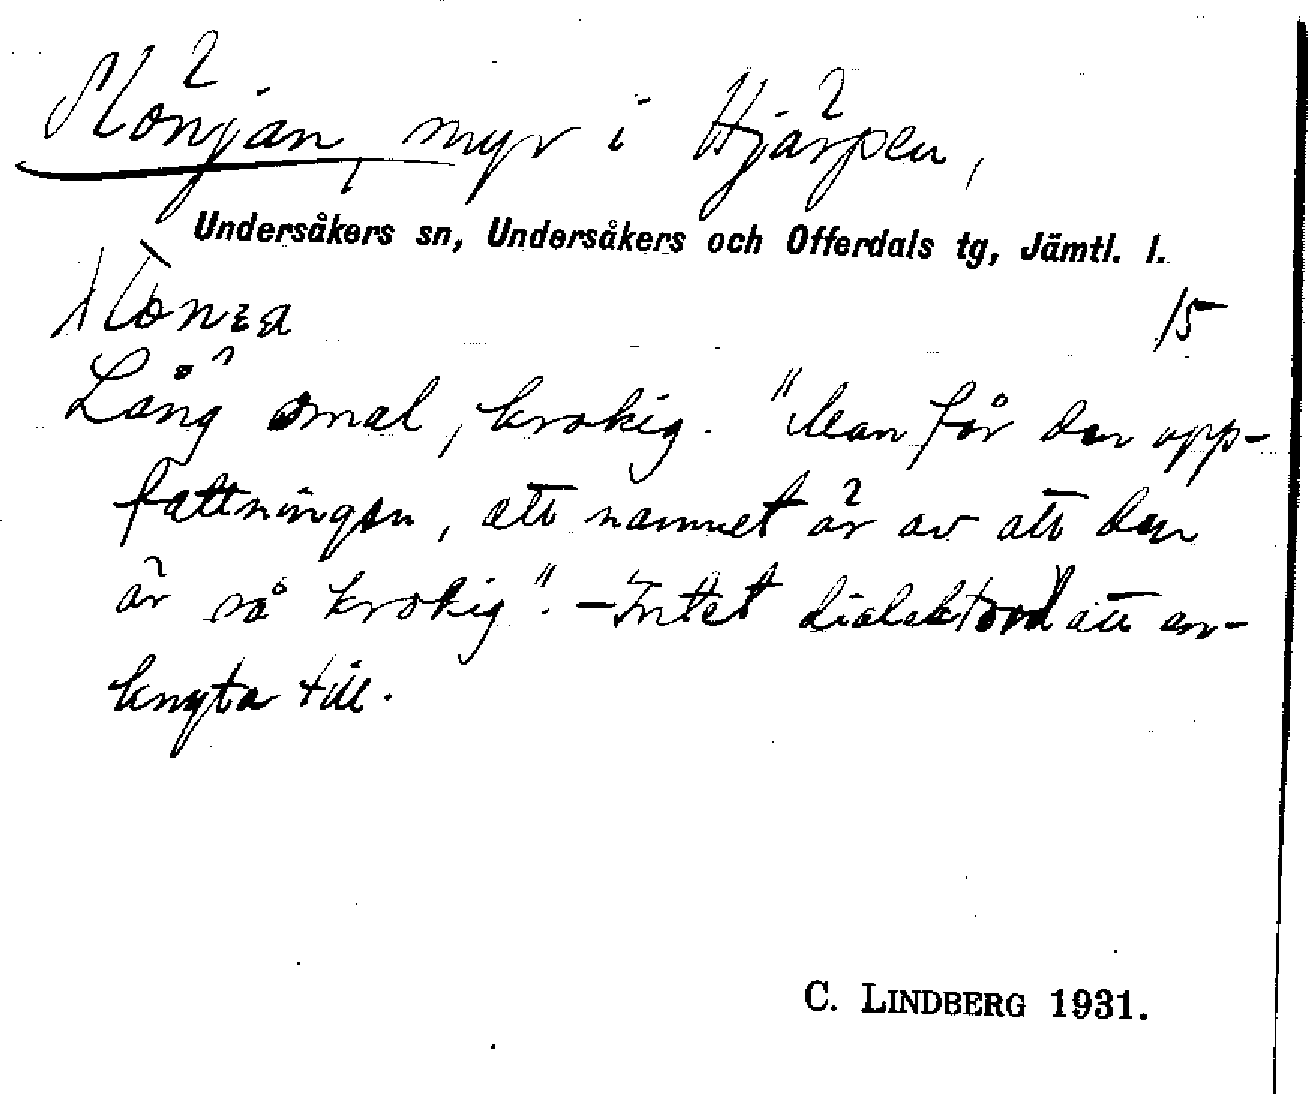 Slönjan, myr i Hjärpen,
Undersåkers sn, Undersåkers och Offerdals tg, Jämtl. l.
15
Lång smal, krokig. "Man får den upp-
fattningen, att namnet är av att den
är så krokig". - Intet dialektord att an-
knyta till.
C. LINDBERG 1931.